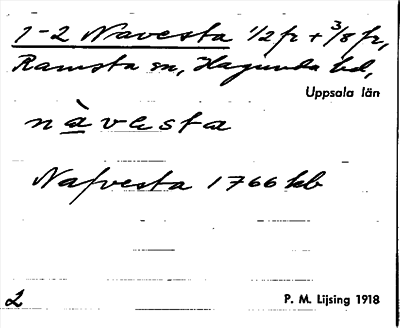 1-2 Navesta 1/2 fr + 3/8 fr,
Ramsta sn, Hagunda hd,
Uppsala län
nàvesta
Nafvesta 1766 kb
2 P. M. Lijsing 1918